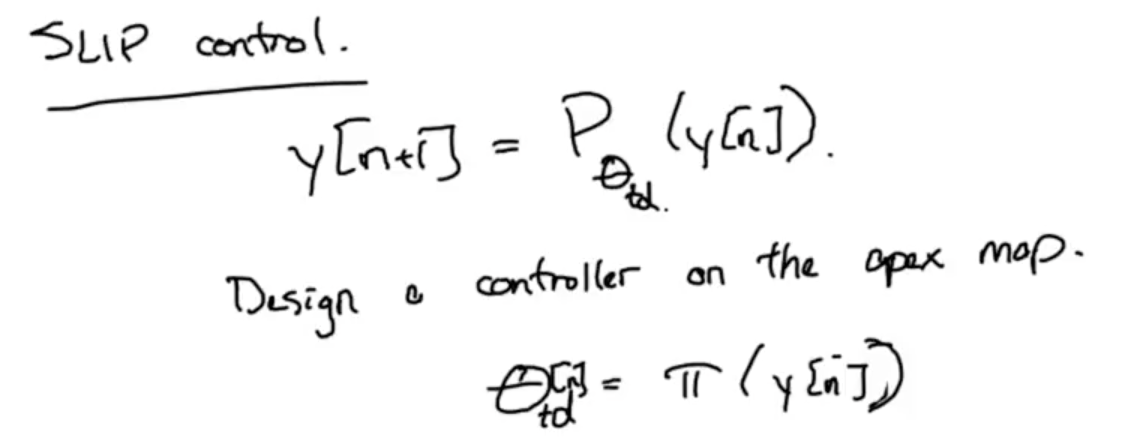 SLIP control.
y[n+1] = P_θ_td. (y[n]).
Design a controller on the apex map.
θ_td[n] = π(y[n])